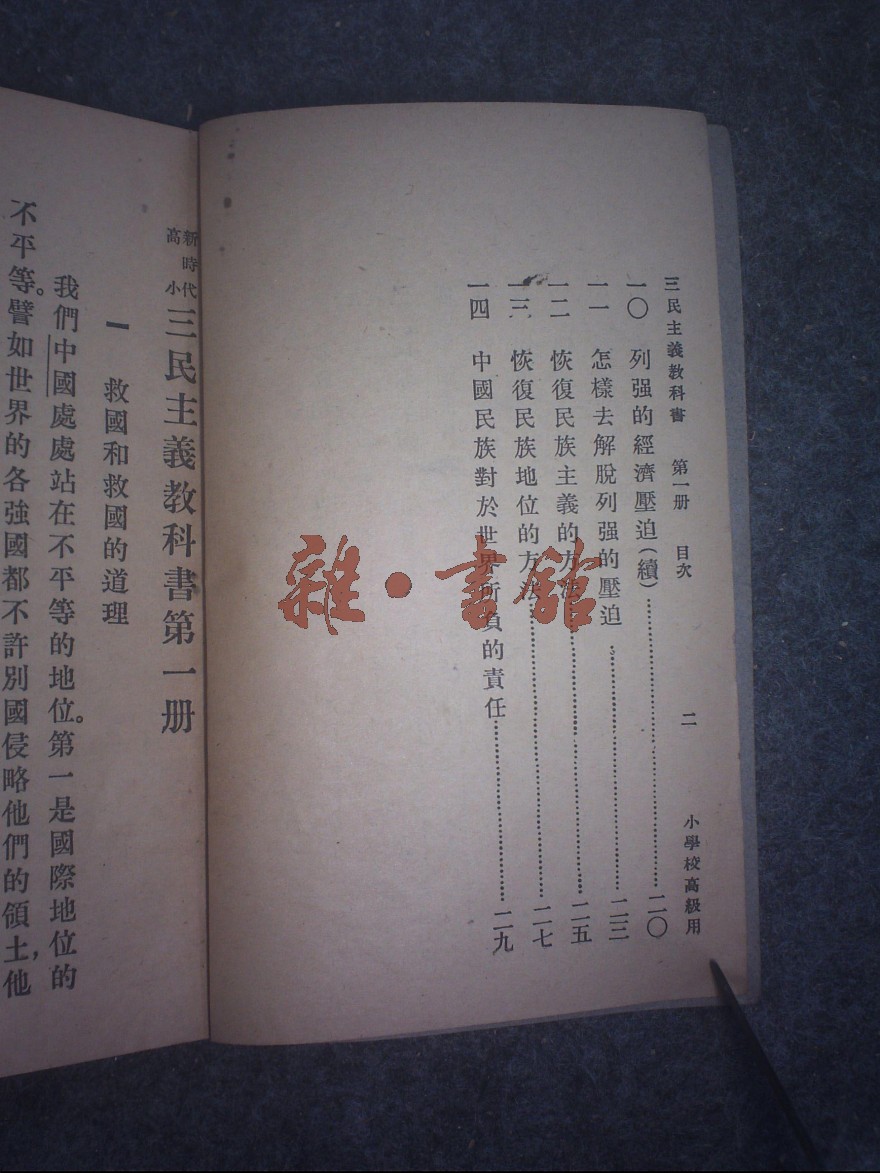 三民主義教科書 第一册 目次 二 小學校高級用
一〇 列强的經濟壓迫(續)…………二〇
一一 怎樣去解脫列强的壓迫…………二三
一二 恢復民族主義的方法…………二五
一三 恢復民族地位的方法…………二七
一四 中國民族對於世界所負的責任…………二九
新時代高小 三民主義教科書第一册
一 救國和救國的道理
我們中國處處站在不平等的地位。第一是國際地位的
不平等。譬如世界的各強國都不許別國侵略他們的領土,他
雜·書館